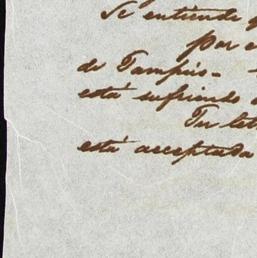 Se entiende q
por e
de Tampico-
está sufriendo
Tu let
está acceptada